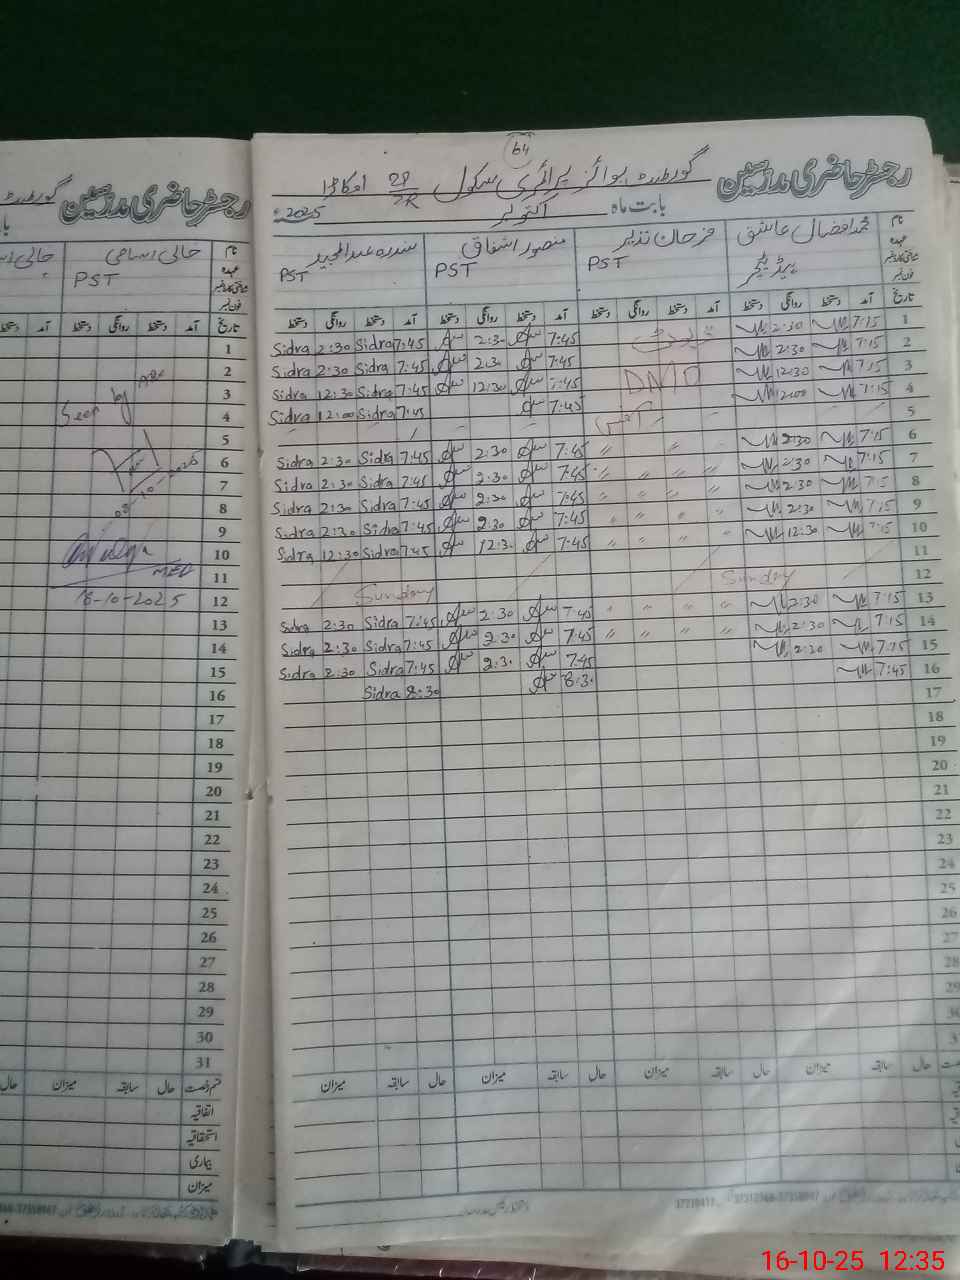 64
رجسٹر حاضری مدرسین گورنمنٹ بوائز پرائمری سکول 2R اوکاڑا
بابت ماہ اکتوبر 2025ء
نام محمد افضال عاشق فرحان نذیر منصور اشفاق سدرہ عبدالمجید
عہدہ ہیڈ ٹیچر PST PST PST
شناختی کارڈ نمبر
فون نمبر
تاریخ آمد دستخط روانگی دستخط آمد دستخط روانگی دستخط آمد دستخط روانگی دستخط آمد دستخط روانگی دستخط
1 7:15 2:30 7:45 2:30 7:45 Sidra 2:30 Sidra
2 7:15 2:30 7:45 2:30 7:45 Sidra 2:30 Sidra
3 7:15 12:30 DMO 7:45 12:30 7:45 Sidra 12:30 Sidra
4 7:15 12:00 آفس 7:45 7:45 Sidra 12:00 Sidra
5
6 7:15 2:30 " " 7:45 2:30 7:45 Sidra 2:30 Sidra
7 7:15 2:30 " " " " 7:45 2:30 7:45 Sidra 2:30 Sidra
8 7:15 2:30 " " " " 7:45 2:30 7:45 Sidra 2:30 Sidra
9 7:15 2:30 " " " " 7:45 2:30 7:45 Sidra 2:30 Sidra
10 7:15 12:30 " " " " 7:45 12:30 7:45 Sidra 12:30 Sidra
11
12 Sunday Sunday
13 7:15 2:30 " " " " 7:45 2:30 7:45 Sidra 2:30 Sidra
14 7:15 2:30 " " " " 7:45 2:30 7:45 Sidra 2:30 Sidra
15 7:15 2:30 7:45 2:30 7:45 Sidra 2:30 Sidra
16 7:45 8:30 8:30 Sidra
17
18
19
20
21
22
23
24
25
26
27
28
29
حال سابقہ میزان حال سابقہ میزان حال سابقہ میزان حال سابقہ میزان
رجسٹر حاضری مدرسین گورنمنٹ
نام
عہدہ PST
شناختی کارڈ نمبر
فون نمبر
تاریخ آمد دستخط روانگی دستخط آمد
1
2
3
Seen by AEO
4
5
6
7
8
9
10
11 MEO
12 16-10-2025
13
14
15
16
17
18
19
20
21
22
23
24
25
26
27
28
29
30
31
قسم رخصت حال سابقہ میزان حال
اتفاقیہ
استحقاقیہ
بیماری
میزان
16-10-25 12:35